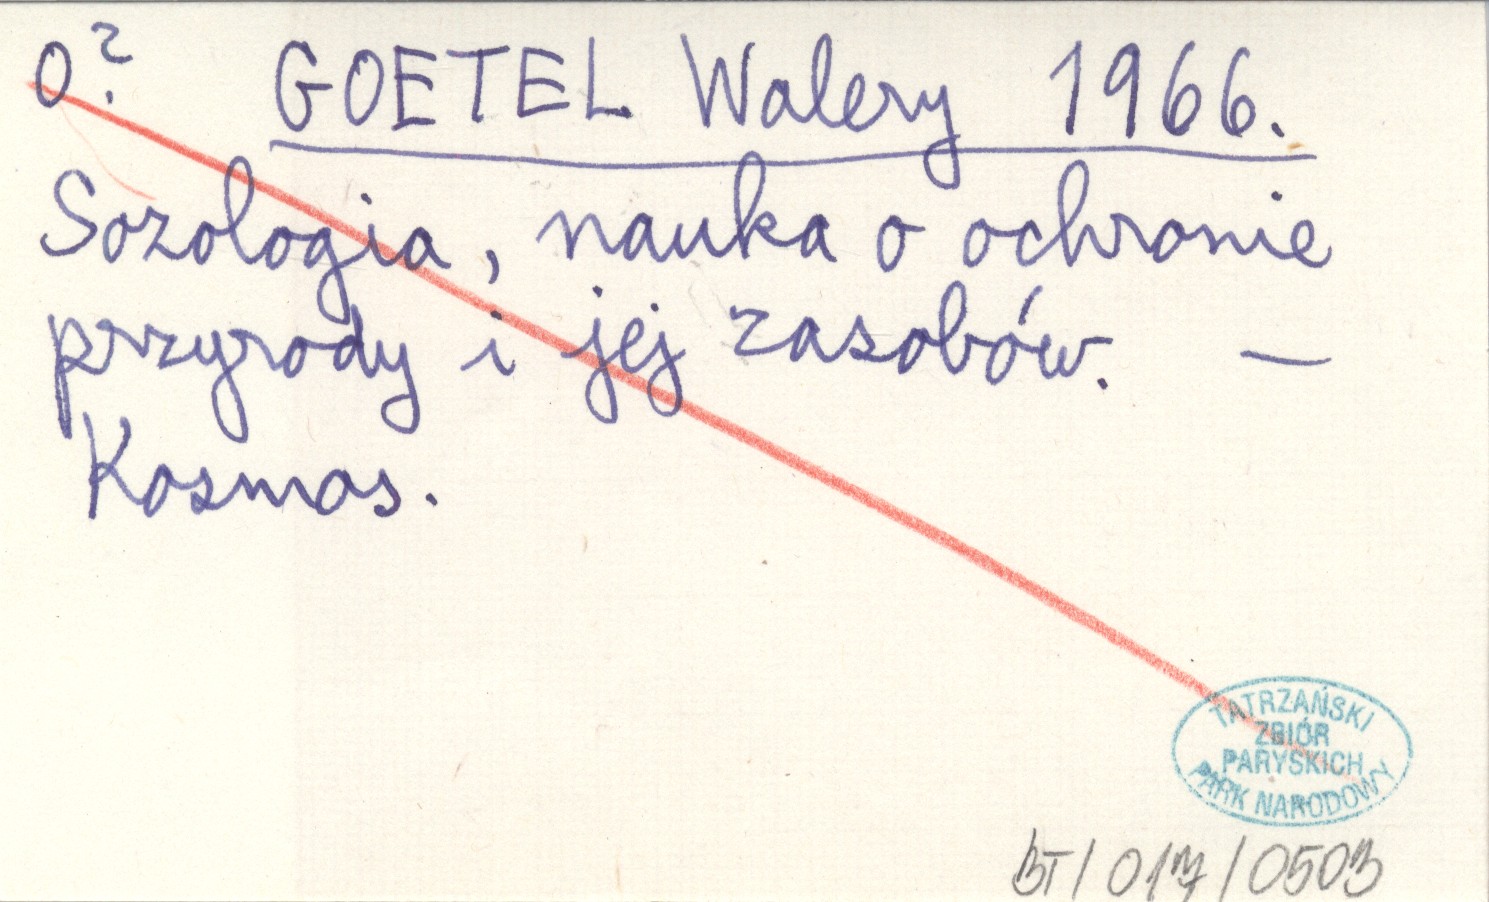 O? GOETEL Walery 1966.
Sozologia, nauka o ochronie
przyrody i jej zasobów. —
Kosmos.
TATRZAŃSKI
ZBIÓR
PARYSKICH
PARK NARODOWY
BT/017/0503